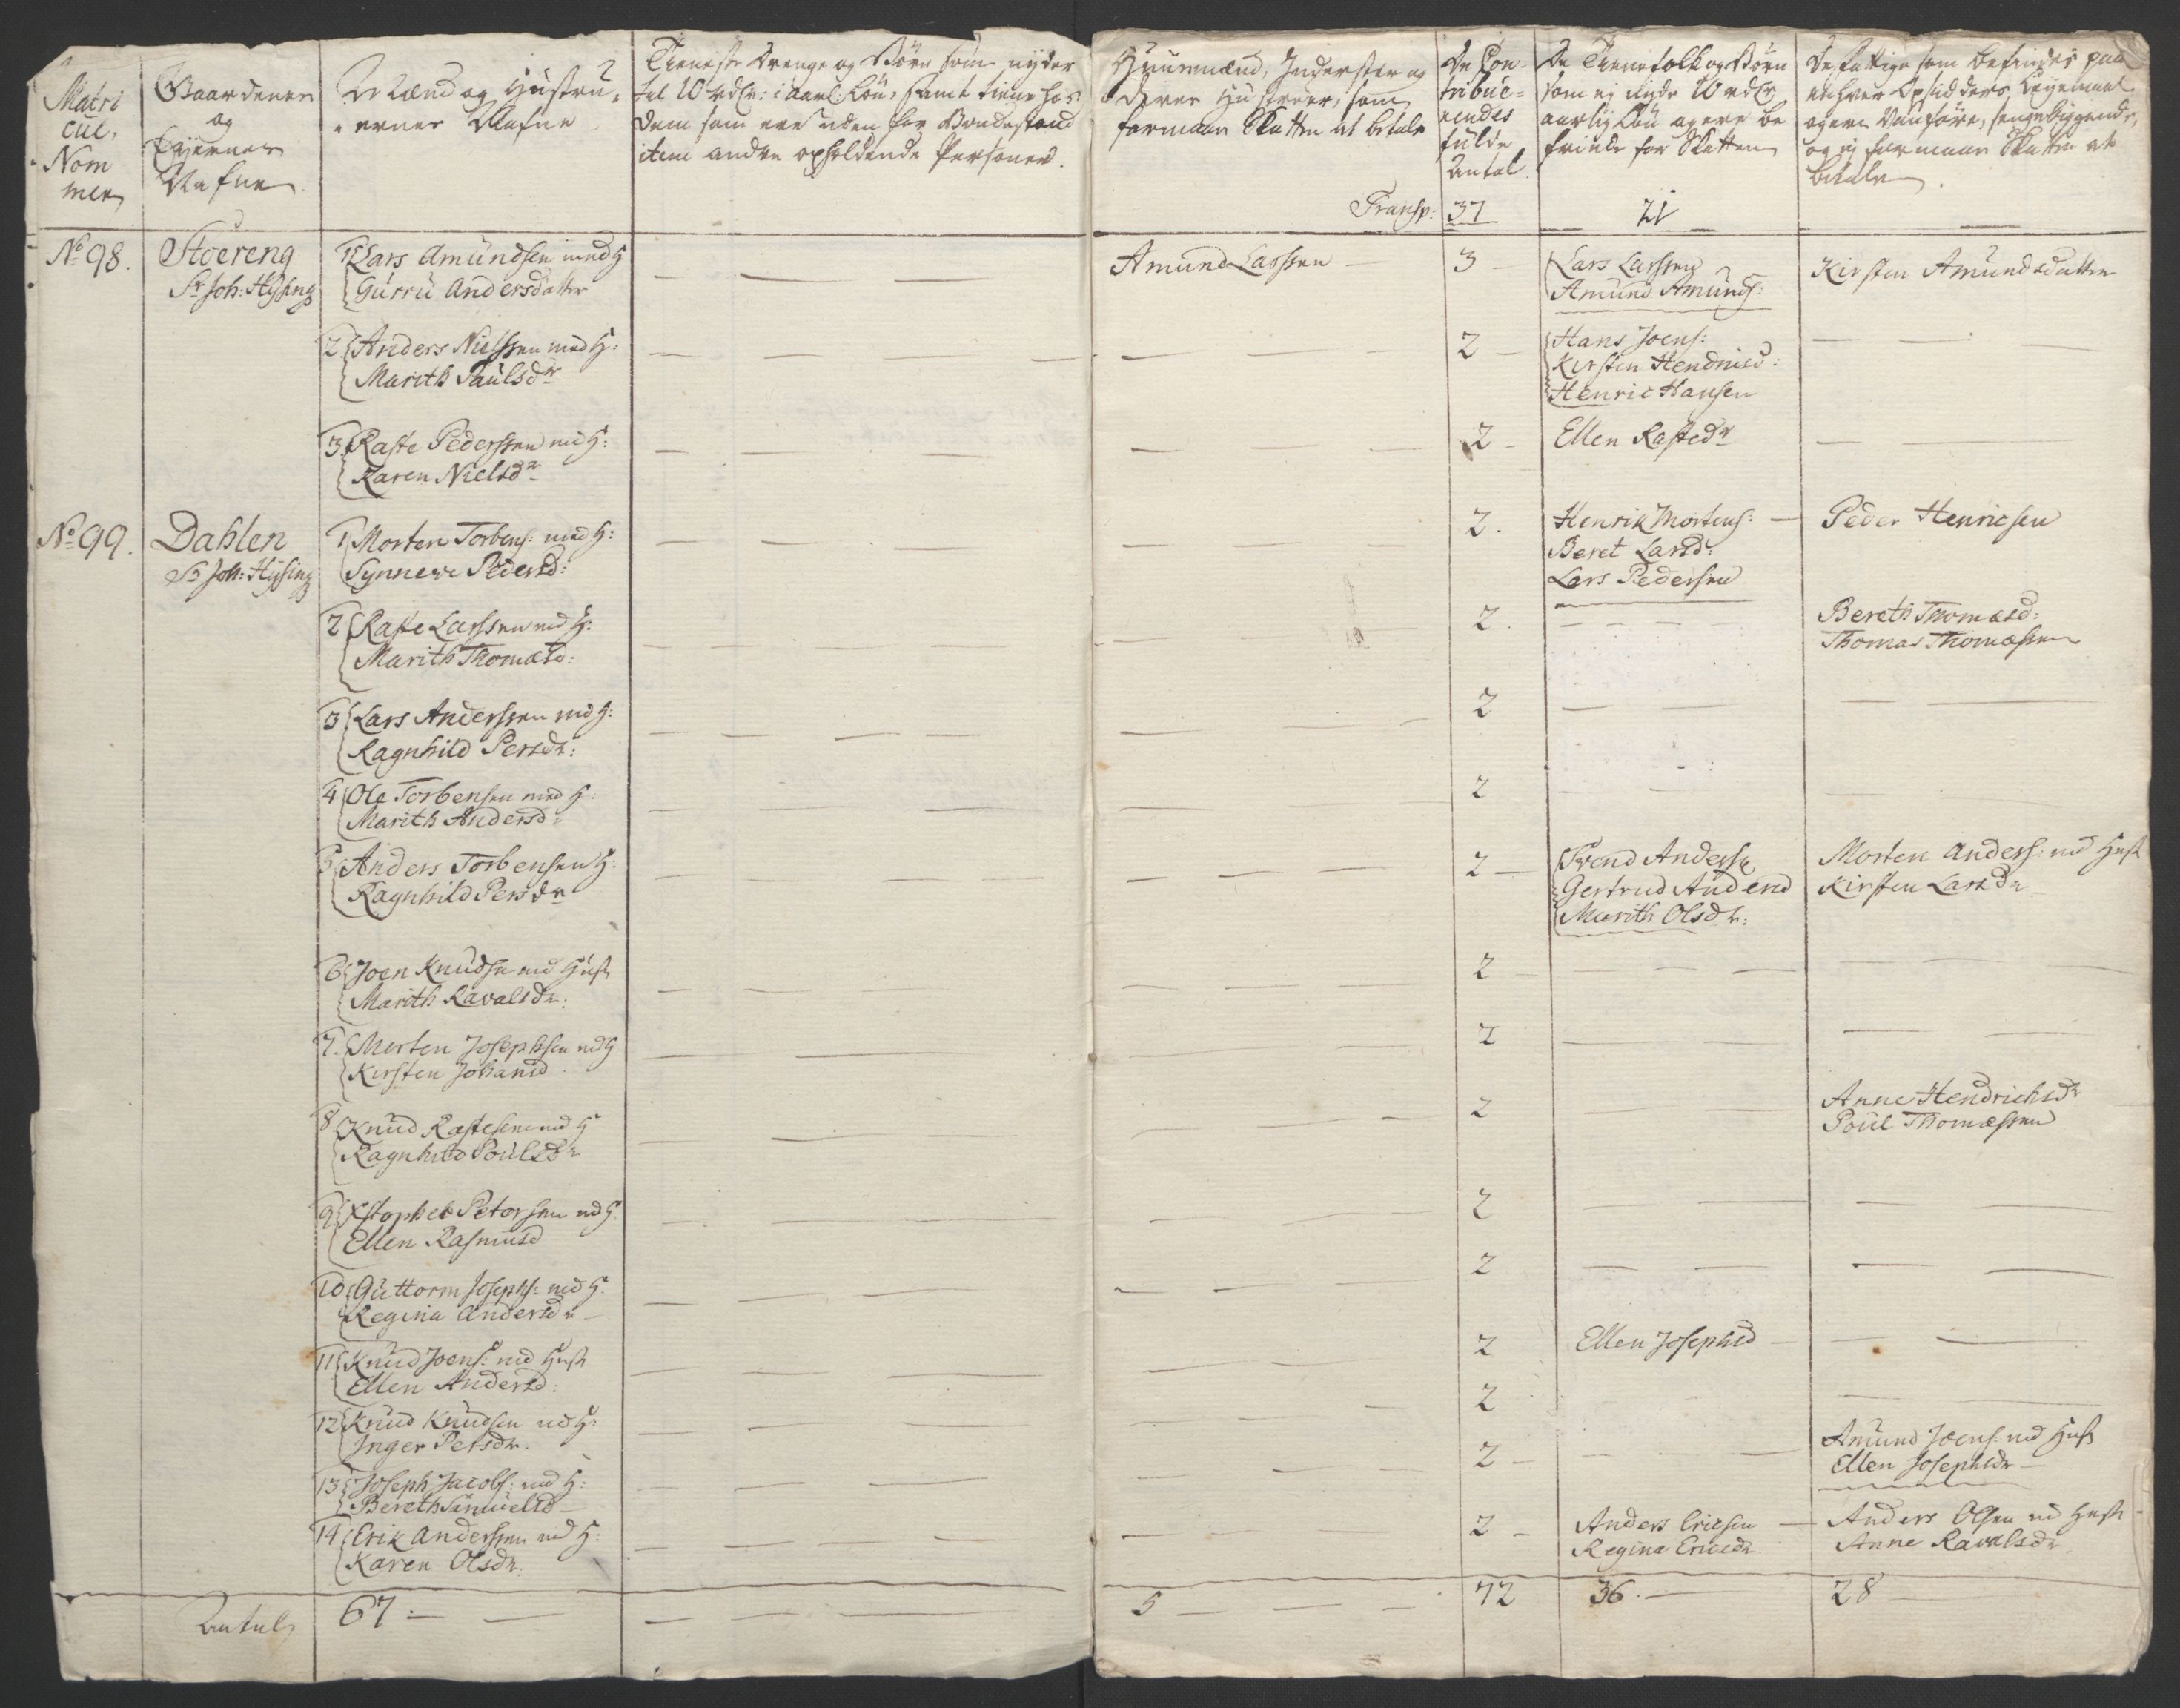 Matri
cul,
Nom
mer
Gaardenes
og
Ejernes
Nafne
Mænd og Hustru-
ernes Nafne
Tieneste Drenge og Börn som nyder
ful 10 rdlr: i aarl: Lön, samt tiene hos
dem som ere uden for Bondestand
item andre opholdende Personer.
Huusmænd, Inderster og
deres Hustruer, som
formaar Skatten at betale
De Con-
tribue-
rendes
fulde
Antal
De Tienestfolk og Börn
som ej nyde 10 rdlr
aarlig Lön og ere be
friede for Skatten
De fattige som befindes paa
enhver Opsidders Leyemaal
og ere Vanföre, sengeliggende,
og ej formaar Skatten at
betale
Transp: 37 21
No 98. Stoereng
Sr Joh: Hysing
1 Lars Amundsen med H
Gurru Andersdatter
Amund Larssen
3
Lars Larssen
Amund Amunds:
Kirsten Amundsdatter
2 Anders Nielssen med H:
Marith Paulsdr
2
Hans Joens:
Kirsten Hendricsd:
Henric Hansen
3 Raste Pederssen md H:
Karen Nielsdr
2
Ellen Rastedr
No 99. Dahlen
Sr Joh: Hysing
1 Morten Torbens: med H:
Synneve Pedersd:
2.
Henrik Mortens:
Beret Larsd:
Lars Pedersen
Peder Henricsen
2 Raste Larssen md H:
Marith Thomasd:
2.
Bereth Thomasd:
Thomas Thomassen
3 Lars Anderssen md H:
Ragnhild Persdr:
2
4 Ole Torbensen med H:
Marith Andersd:
2
5 Anders Torbensen H:
Ragnhild Persdr
2
Trend Anders:
Gertrud Andersd
Marith Olsdr:
Morten Anders: md Hust
Kirsten Larsdr
6 Joen Knudsen md Hust
Marith Ravalsdr:
2
7. Morten Josephsen md H
Kirsten Johansd
2
8 Knud Rastesen md H
Ragnhild Poulsdr
2
Anne Hendrichsdr
Poul Thomassen
9 Xstopher Petersen md H:
Ellen Rasmusd
2
10 Guttorm Josephs: md H:
Regina Andersdr
2
11 Knud Joens: md Hust
Ellen Andersd:
2
Ellen Josephsd
12 Knud Knudsen md H:
Inger Petsdr.
2
13 Joseph Jacobs: md H:
Bereth Samuelsd
2
Amund Joens: md Hust
Ellen Josephsdr
14 Erik Anderssen md H:
Karen Olsdr.
2
Anders Ericsen
Regina Ericsdr
Anders Olsen md Hust
Anne Ravalsdr
Antal 67 5 72 36. 28